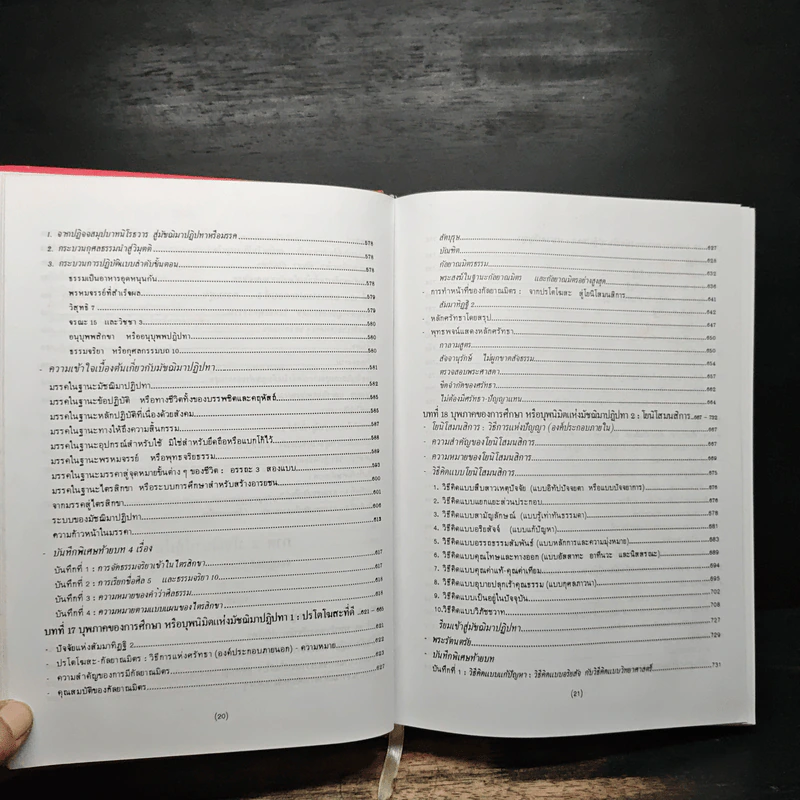 1. จากปฏิจจสมุปบาทนิโรธวาร สู่มัชฌิมาปฏิปทาหรือมรรค 576
2. กระบวนกุศลธรรมนำสู่วิมุตติ 576
3. กระบวนการปฏิบัติแบบลำดับขั้นตอน 578
ธรรมเป็นอาหารอุดหนุนกัน 578
พรหมจรรย์ที่สำเร็จผล 579
วิสุทธิ 7 579
จรณะ 15 และวิชชา 3 580
อนุบุพพสิกขา หรืออนุบุพพปฏิปทา 580
ธรรมจริยา หรือกุศลกรรมบถ 10 580
- ความเข้าใจเบื้องต้นเกี่ยวกับมัชฌิมาปฏิปทา 581
มรรคในฐานะมัชฌิมาปฏิปทา 582
มรรคในฐานะข้อปฏิบัติ หรือทางชีวิตทั้งของบรรพชิตและคฤหัสถ์
มรรคในฐานะหลักปฏิบัติที่เนื่องด้วยสังคม
มรรคในฐานะทางให้ถึงความสิ้นกรรม
มรรคในฐานะอุปกรณ์สำหรับใช้ มิใช่สำหรับยึดถือหรือแบกโก้ไว้
มรรคในฐานะพรหมจรรย์ หรือพุทธจริยธรรม
มรรคในฐานะมรรคาสู่จุดหมายขั้นต่าง ๆ ของชีวิต : อรรถะ 3 สองแบบ
มรรคในฐานะไตรสิกขา หรือระบบการศึกษาสำหรับสร้างอารยชน
จากมรรคสู่ไตรสิกขา 601
ระบบของมัชฌิมาปฏิปทา
ความก้าวหน้าในมรรคา 613
- บันทึกพิเศษท้ายบท 4 เรื่อง
บันทึกที่ 1 : การจัดธรรมจริยาเข้าในไตรสิกขา 617
บันทึกที่ 2 : การเรียกชื่อศีล 5 และธรรมจริยา 10 617
บันทึกที่ 3 : ความหมายของคำว่าศีลธรรม 618
บันทึกที่ 4 : ความหมายตามแบบแผนของไตรสิกขา
บทที่ 17 บุพภาคของการศึกษา หรือบุพนิมิตแห่งมัชฌิมาปฏิปทา 1 : ปรโตโฆสะที่ดี 621 - 665
- ปัจจัยแห่งสัมมาทิฏฐิ 2 621
- ปรโตโฆสะ-กัลยาณมิตร : วิธีการแห่งศรัทธา (องค์ประกอบภายนอก) - ความหมาย 622
- ความสำคัญของการมีกัลยาณมิตร 623
- คุณสมบัติของกัลยาณมิตร 627
(20)
สัตบุรุษ 627
บัณฑิต 629
กัลยาณมิตรธรรม
พระสงฆ์ในฐานะกัลยาณมิตร และกัลยาณมิตรอย่างสูงสุด 636
- การทำหน้าที่ของกัลยาณมิตร : จากปรโตโฆสะ สู่โยนิโสมนสิการ 641
สัมมาทิฏฐิ 2
- หลักศรัทธาโดยสรุป 647
- พุทธพจน์แสดงหลักศรัทธา
กาลามสูตร
สัจจานุรักษ์ ไม่ผูกขาดสัจธรรม
ตรวจสอบพระศาสดา
ขีดจำกัดของศรัทธา
ไม่ต้องมีศรัทธา-ปัญญาแทน 664
บทที่ 18 บุพภาคของการศึกษา หรือบุพนิมิตแห่งมัชฌิมาปฏิปทา 2 : โยนิโสมนสิการ 667 - 732
- โยนิโสมนสิการ : วิธีการแห่งปัญญา (องค์ประกอบภายใน) 667
- ความสำคัญของโยนิโสมนสิการ 667
- ความหมายของโยนิโสมนสิการ
- วิธีคิดแบบโยนิโสมนสิการ 675
1. วิธีคิดแบบสืบสาวเหตุปัจจัย (แบบอิทัปปัจจยตา หรือแบบปัจจยาการ) 676
2. วิธีคิดแบบแยกแยะส่วนประกอบ 677
3. วิธีคิดแบบสามัญลักษณ์ (แบบรู้เท่าทันธรรมดา)
4. วิธีคิดแบบอริยสัจจ์ (แบบแก้ปัญหา) 681
5. วิธีคิดแบบอรรถธรรมสัมพันธ์ (แบบหลักการและความมุ่งหมาย) 685
6. วิธีคิดแบบคุณโทษและทางออก (แบบอัสสาทะ อาทีนวะ และนิสสรณะ)
7. วิธีคิดแบบคุณค่าแท้-คุณค่าเทียม 694
8. วิธีคิดแบบอุบายปลุกเร้าคุณธรรม (แบบกุศลภาวนา) 695
9. วิธีคิดแบบเป็นอยู่ในปัจจุบัน 702
10. วิธีคิดแบบวิภัชชวาท 706
เรียมเข้าสู่มัชฌิมาปฏิปทา
- พระรัตนตรัย 729
- บันทึกพิเศษท้ายบท
บันทึกที่ 1 : วิธีคิดแบบแก้ปัญหา : วิธีคิดแบบอริยสัจ กับวิธีคิดแบบวิทยาศาสตร์ 731
(21)